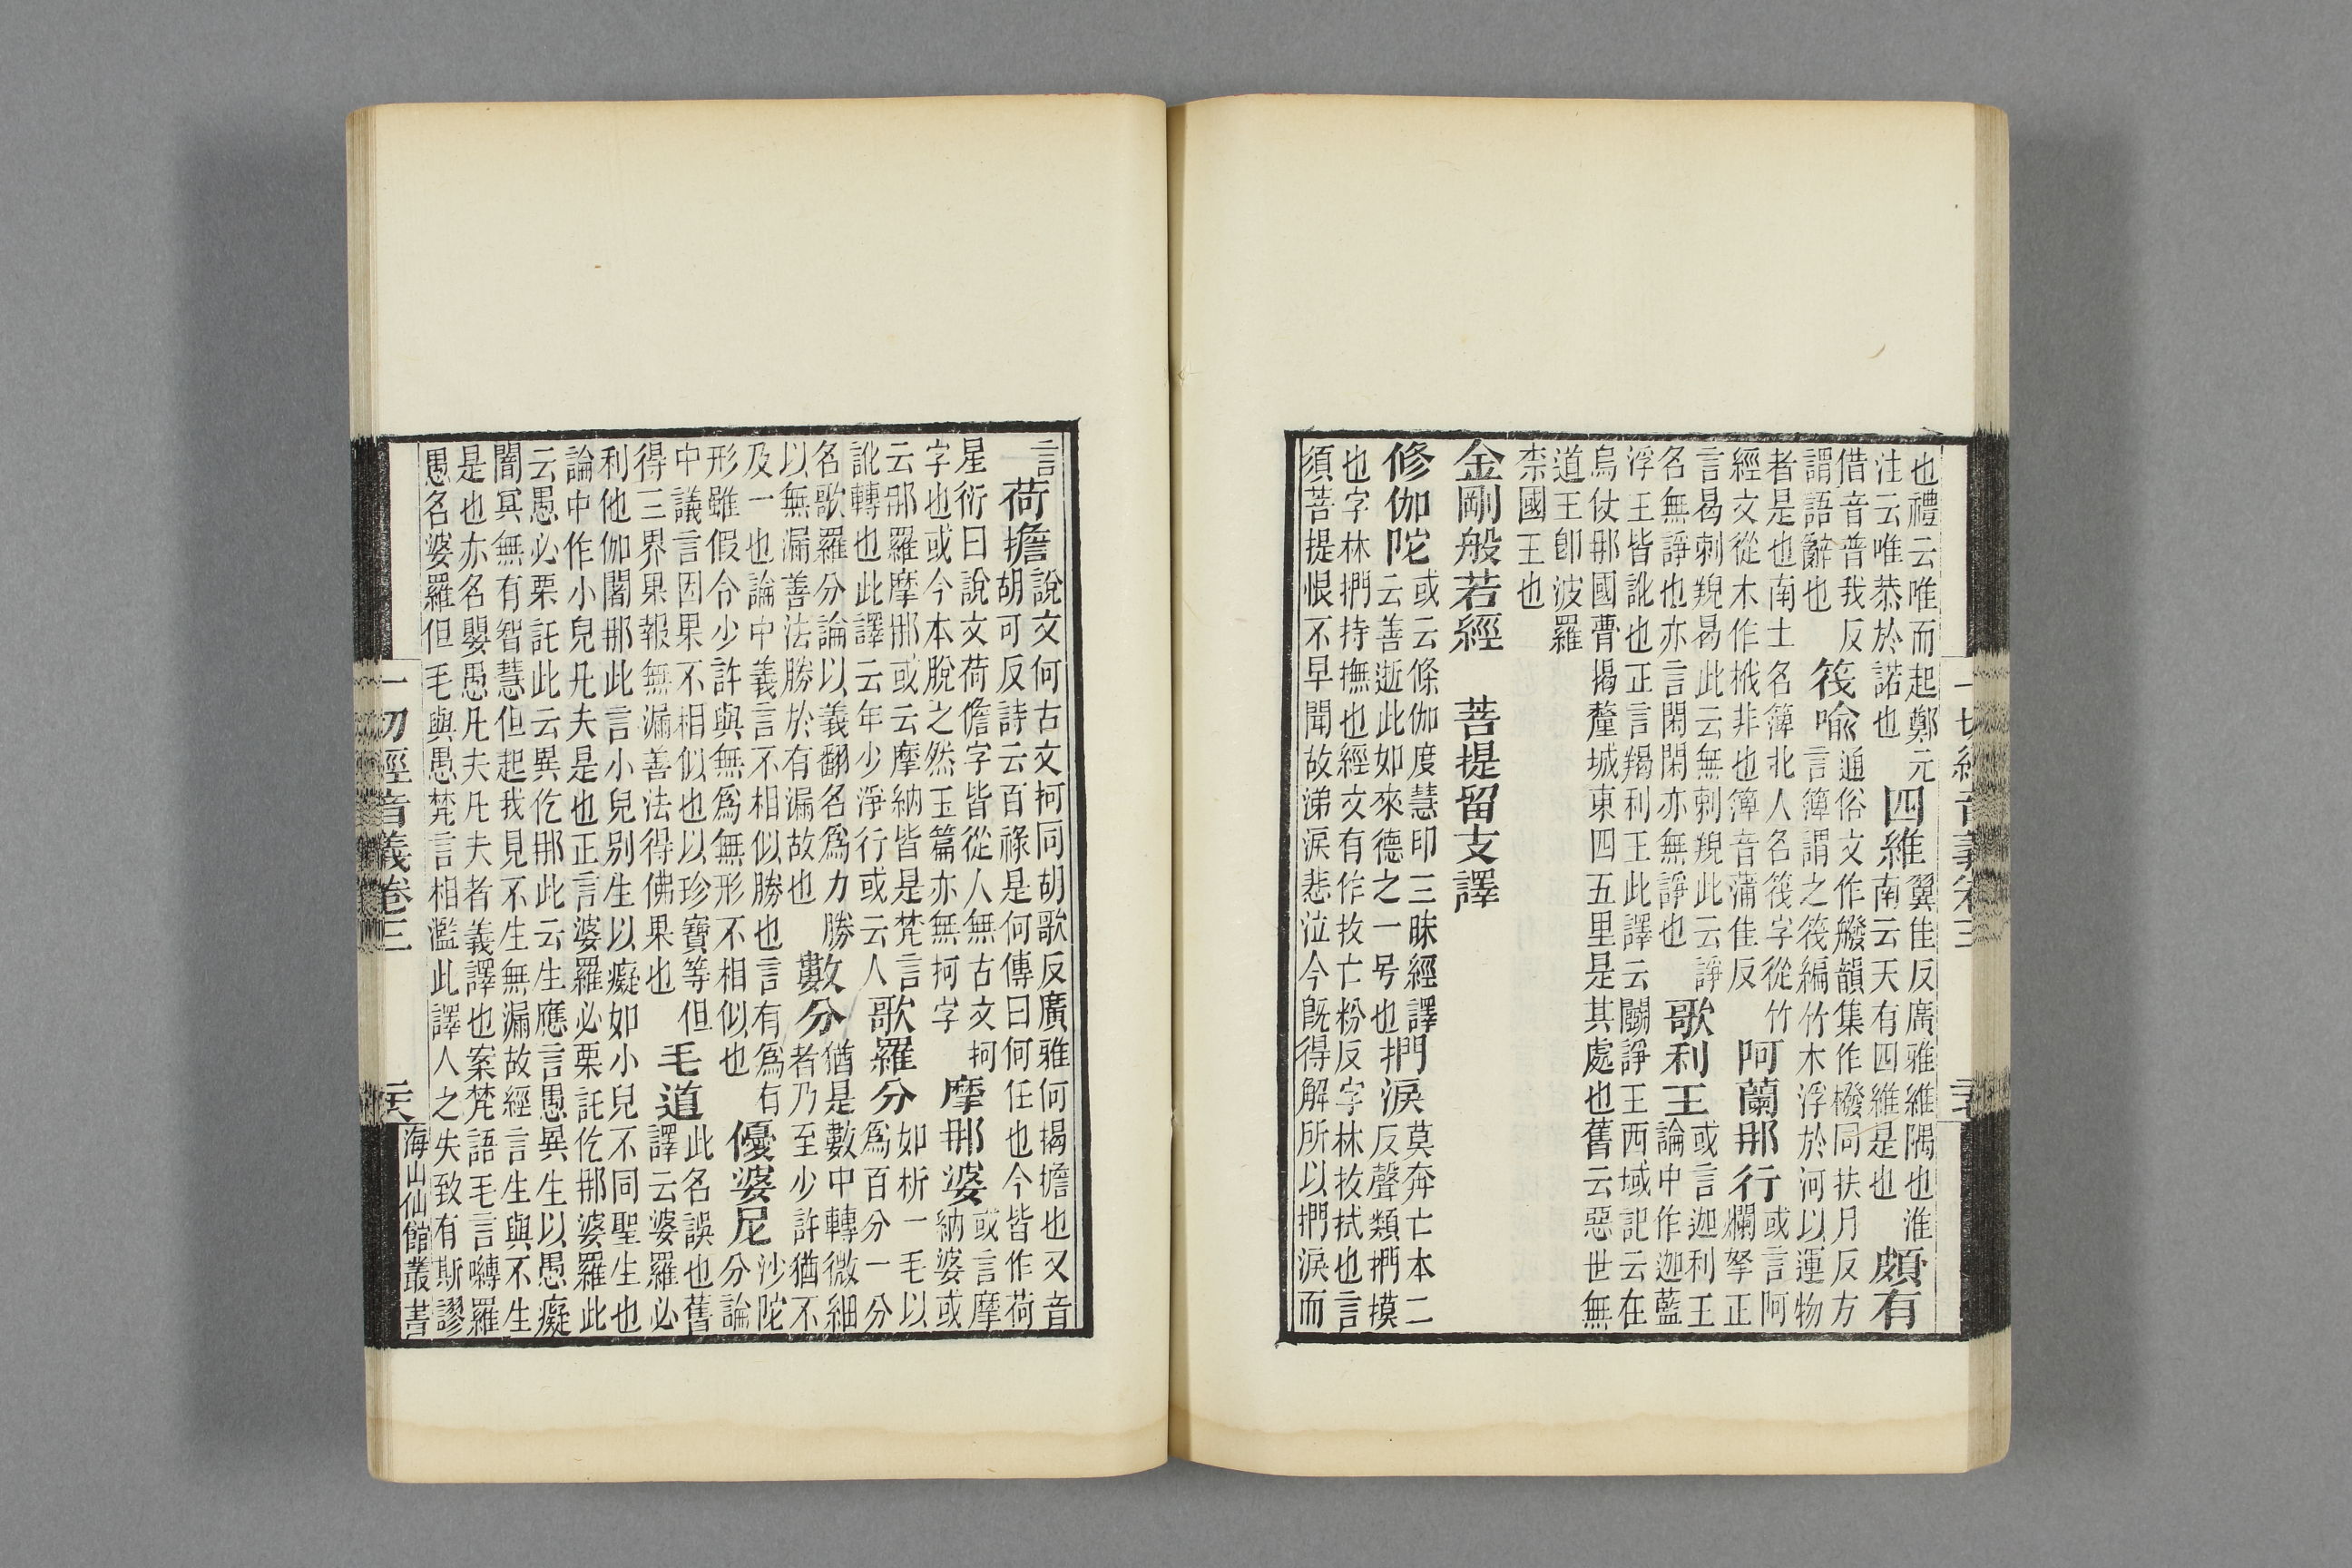 一切經音義卷三
也禮云唯而起鄭元
注云唯恭於諾也
四維
翼隹反廣雅維隅也淮
南云天有四維是也
頗有
借音普我反
謂語辭也
筏喻
通俗文作艬韻集作橃同扶月反方
言簰謂之筏編竹木浮於河以運物
者是也南土名簰北人名筏字從竹
經文從木作栰非也簰音蒲隹反
阿蘭那行
或言阿
爛拏正
言曷剌䚗曷此云無剌䚗此云諍
名無諍也亦言閑閑亦無諍也
歌利王
或言迦利王
論中作迦藍
浮王皆訛也正言羯利王此譯云鬭諍王西域記云在
烏仗那國瞢揭釐城東四五里是其處也舊云惡世無
道王卽波羅
柰國王也
金剛般若經　菩提留支譯
修伽陀
或云條伽度慧印三昧經譯
云善逝此如來德之一号也
捫淚
莫奔亡本二
反聲類捫摸
也字林捫持撫也經文有作抆亡粉反字林抆拭也言
須菩提恨不早聞故涕淚悲泣今旣得解所以捫淚而
言
荷擔
說文何古文抲同胡歌反廣雅何揭擔也又音
胡可反詩云百祿是何傳曰何任也今皆作荷
星衍曰說文荷儋字皆從人無古文抲
字也或今本脫之然玉篇亦無抲字
摩那婆
或言摩
納婆或
云那羅摩那或云摩納皆是梵言
訛轉也此譯云年少淨行或云人
歌羅分
如析一毛以
爲百分一分
名歌羅分論以義翻名爲力勝
以無漏善法勝於有漏故也
數分
猶是數中轉微細
者乃至少許猶不
及一也論中義言不相似勝也言有爲有
形雖假令少許與無爲無形不相似也
優婆尼
沙陀
分論
中議言因果不相似也以珍寶等但
得三界果報無漏善法得佛果也
毛道
此名誤也舊
譯云婆羅必
利他伽闍那此言小兒别生以癡如小兒不同聖生也
論中作小兒凡夫是也正言婆羅必栗託仡那婆羅此
云愚必栗託此云異仡那此云生應言愚異生以愚癡
闇冥無有智慧但起我見不生無漏故經言生與不生
是也亦名嬰愚凡夫凡夫者義譯也案梵語毛言嚩羅
愚名婆羅但毛與愚梵言相濫此譯人之失致有斯謬
一切經音義卷三
海山仙館叢書